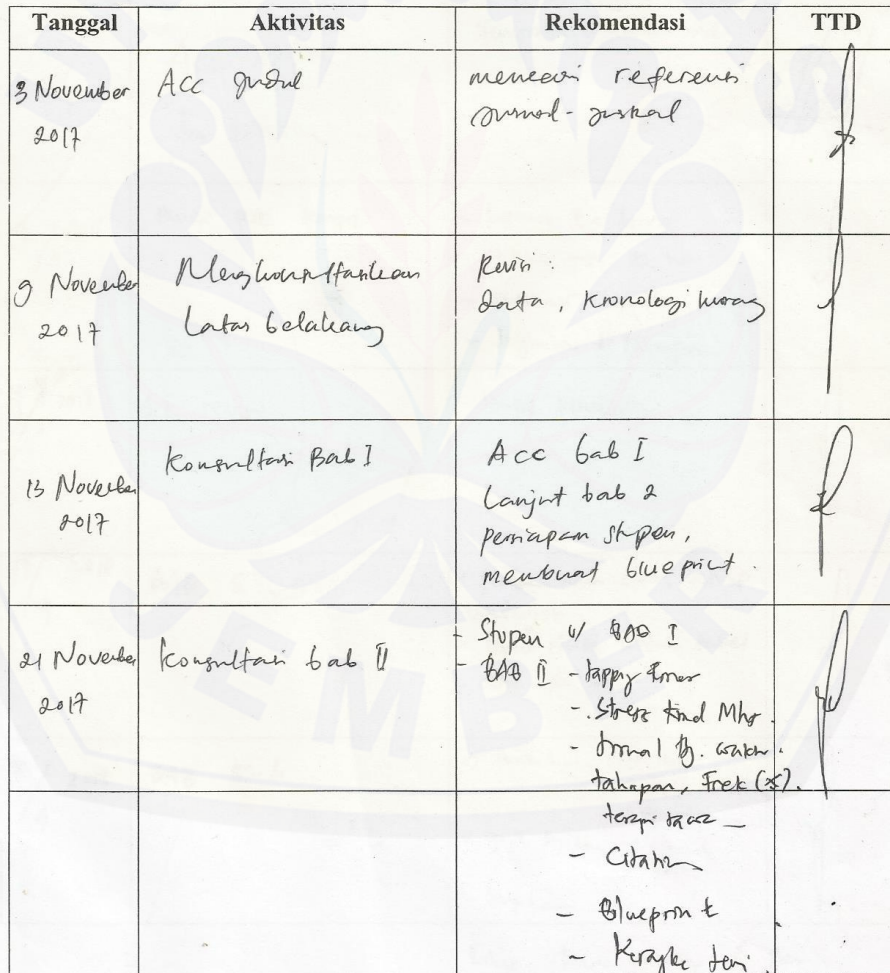 Tanggal Aktivitas Rekomendasi TTD
3 November 2017
Acc judul
mencari referensi
jurnal-jurnal
9 November 2017
Mengkonsultasikan
Latar belakang
Revisi :
data, kronologi kurang
13 November 2017
Konsultasi Bab I
Acc bab I
Lanjut bab 2
persiapan stupen,
membuat blueprint.
21 November 2017
Konsultasi bab II
- Stupen u/ BAB I
- BAB II -
- Stress Mhs.
- Jurnal tg.
tahapan, Frek (x).
terapi tawa
- Citation
- Blueprint
- Kerangka teori
JEMBER